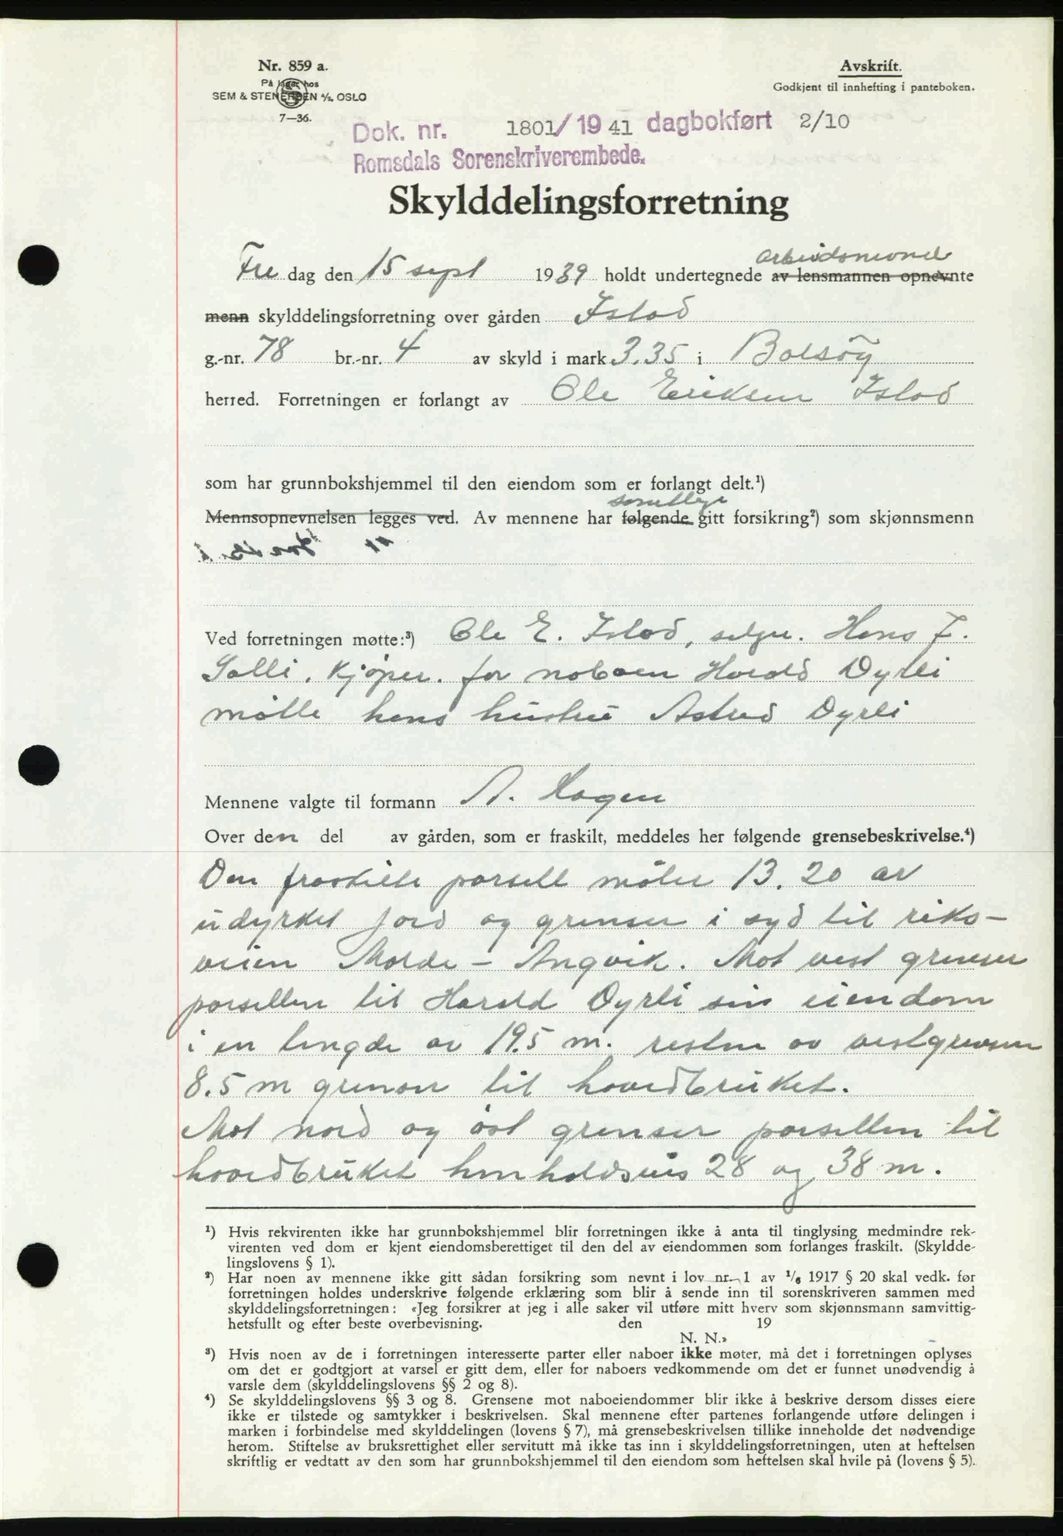 Nr. 859 a.
På lager hos
SEM & STENERSEN A/S. OSLO
7—36.
Avskrift.
Godkjent til innhefting i panteboken.
Dok. nr. 1801/1941 dagbokført 2/10
Romsdals Sorenskriverembede.
Skylddelingsforretning
arbeidsnevnd
Fre dag den 15 sept 1939 holdt undertegnede av lensmannen opnevnte
menn skylddelingsforretning over gården Istad
g.-nr. 78 br.-nr. 4 av skyld i mark 3.35 i Bolsöy
herred. Forretningen er forlangt av Ole Eriksen Istad
som har grunnbokshjemmel til den eiendom som er forlangt delt.¹)
samtlige
Mennsopnevnelsen legges ved. Av mennene har følgende gitt forsikring²) som skjønnsmenn
Ved forretningen møtte:³) Ole E. Istad, selger. Hans J.
Salli, Kjøper. for naboen Harald Dyrli
møtte hans hustru Astrid Dyrli
Mennene valgte til formann A. Hagen
Over den del av gården, som er fraskilt, meddeles her følgende grensebeskrivelse.⁴)
Den fraskilte parsell måler 13.20 ar
udyrket jord og grenser i syd til riks-
veien Molde - Angvik. Mot vest grenser
parsellen til Harald Dyrli sin eiendom
i en lengde av 19.5 m. resten av vestgrensen
8.5 m grenser til hovedbruket.
Mot nord og öst grenser parsellen til
hovedbruket henholdsvis 28 og 38 m.
¹) Hvis rekvirenten ikke har grunnbokshjemmel blir forretningen ikke å anta til tinglysing medmindre rek-
virenten ved dom er kjent eiendomsberettiget til den del av eiendommen som forlanges fraskilt. (Skyldde-
lingslovens § 1).
²) Har noen av mennene ikke gitt sådan forsikring som nevnt i lov nr. 1 av 1/6 1917 § 20 skal vedk. før
forretningen holdes underskrive følgende erklæring som blir å sende inn til sorenskriveren sammen med
skylddelingsforretningen: «Jeg forsikrer at jeg i alle saker vil utføre mitt hverv som skjønnsmann samvittig-
hetsfullt og efter beste overbevisning. den 19
N. N.»
³) Hvis noen av de i forretningen interesserte parter eller naboer ikke møter, må det i forretningen oplyses
om det er godtgjort at varsel er gitt dem, eller for naboers vedkommende om det er funnet unødvendig å
varsle dem (skylddelingslovens §§ 2 og 8).
⁴) Se skylddelingslovens §§ 3 og 8. Grensene mot naboeiendommer blir ikke å beskrive dersom disses eiere
ikke er tilstede og samtykker i beskrivelsen. Skal mennene efter partenes forlangende utføre delingen i
marken i forbindelse med skylddelingen (lovens § 7), må grensebeskrivelsen tillike inneholde det nødvendige
herom. Stiftelse av bruksrettighet eller servitutt må ikke tas inn i skylddelingsforretningen, uten at heftelsen
skriftlig er vedtatt av den som har grunnbokshjemmel til den eiendom som heftelsen skal hvile på (lovens § 5).